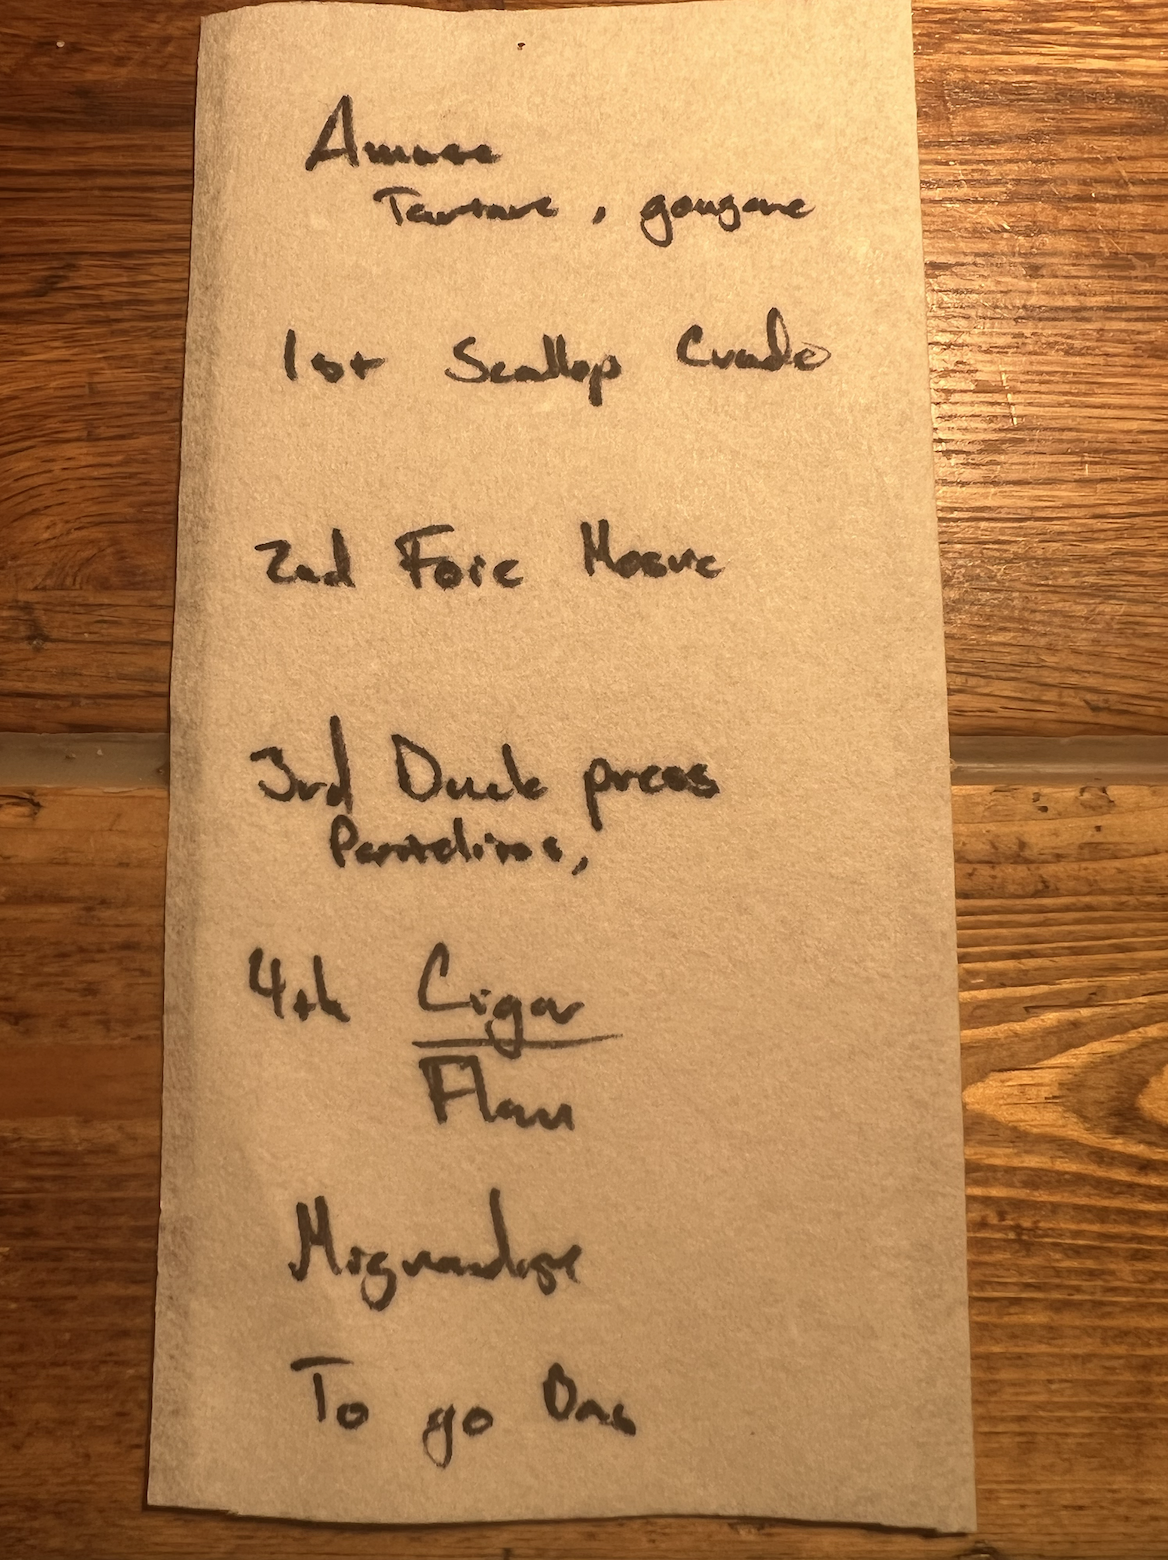 Amuse
Tartare, gougere
1st Scallop Crudo
2nd Foie
3rd Duck press
4th Cigar
Flan
Mignardise
To go